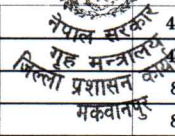 नेपाल सरकार
गृह मन्त्रालय
जिल्ला प्रशासन कार्या
मकवानपुर
4
4
8
8